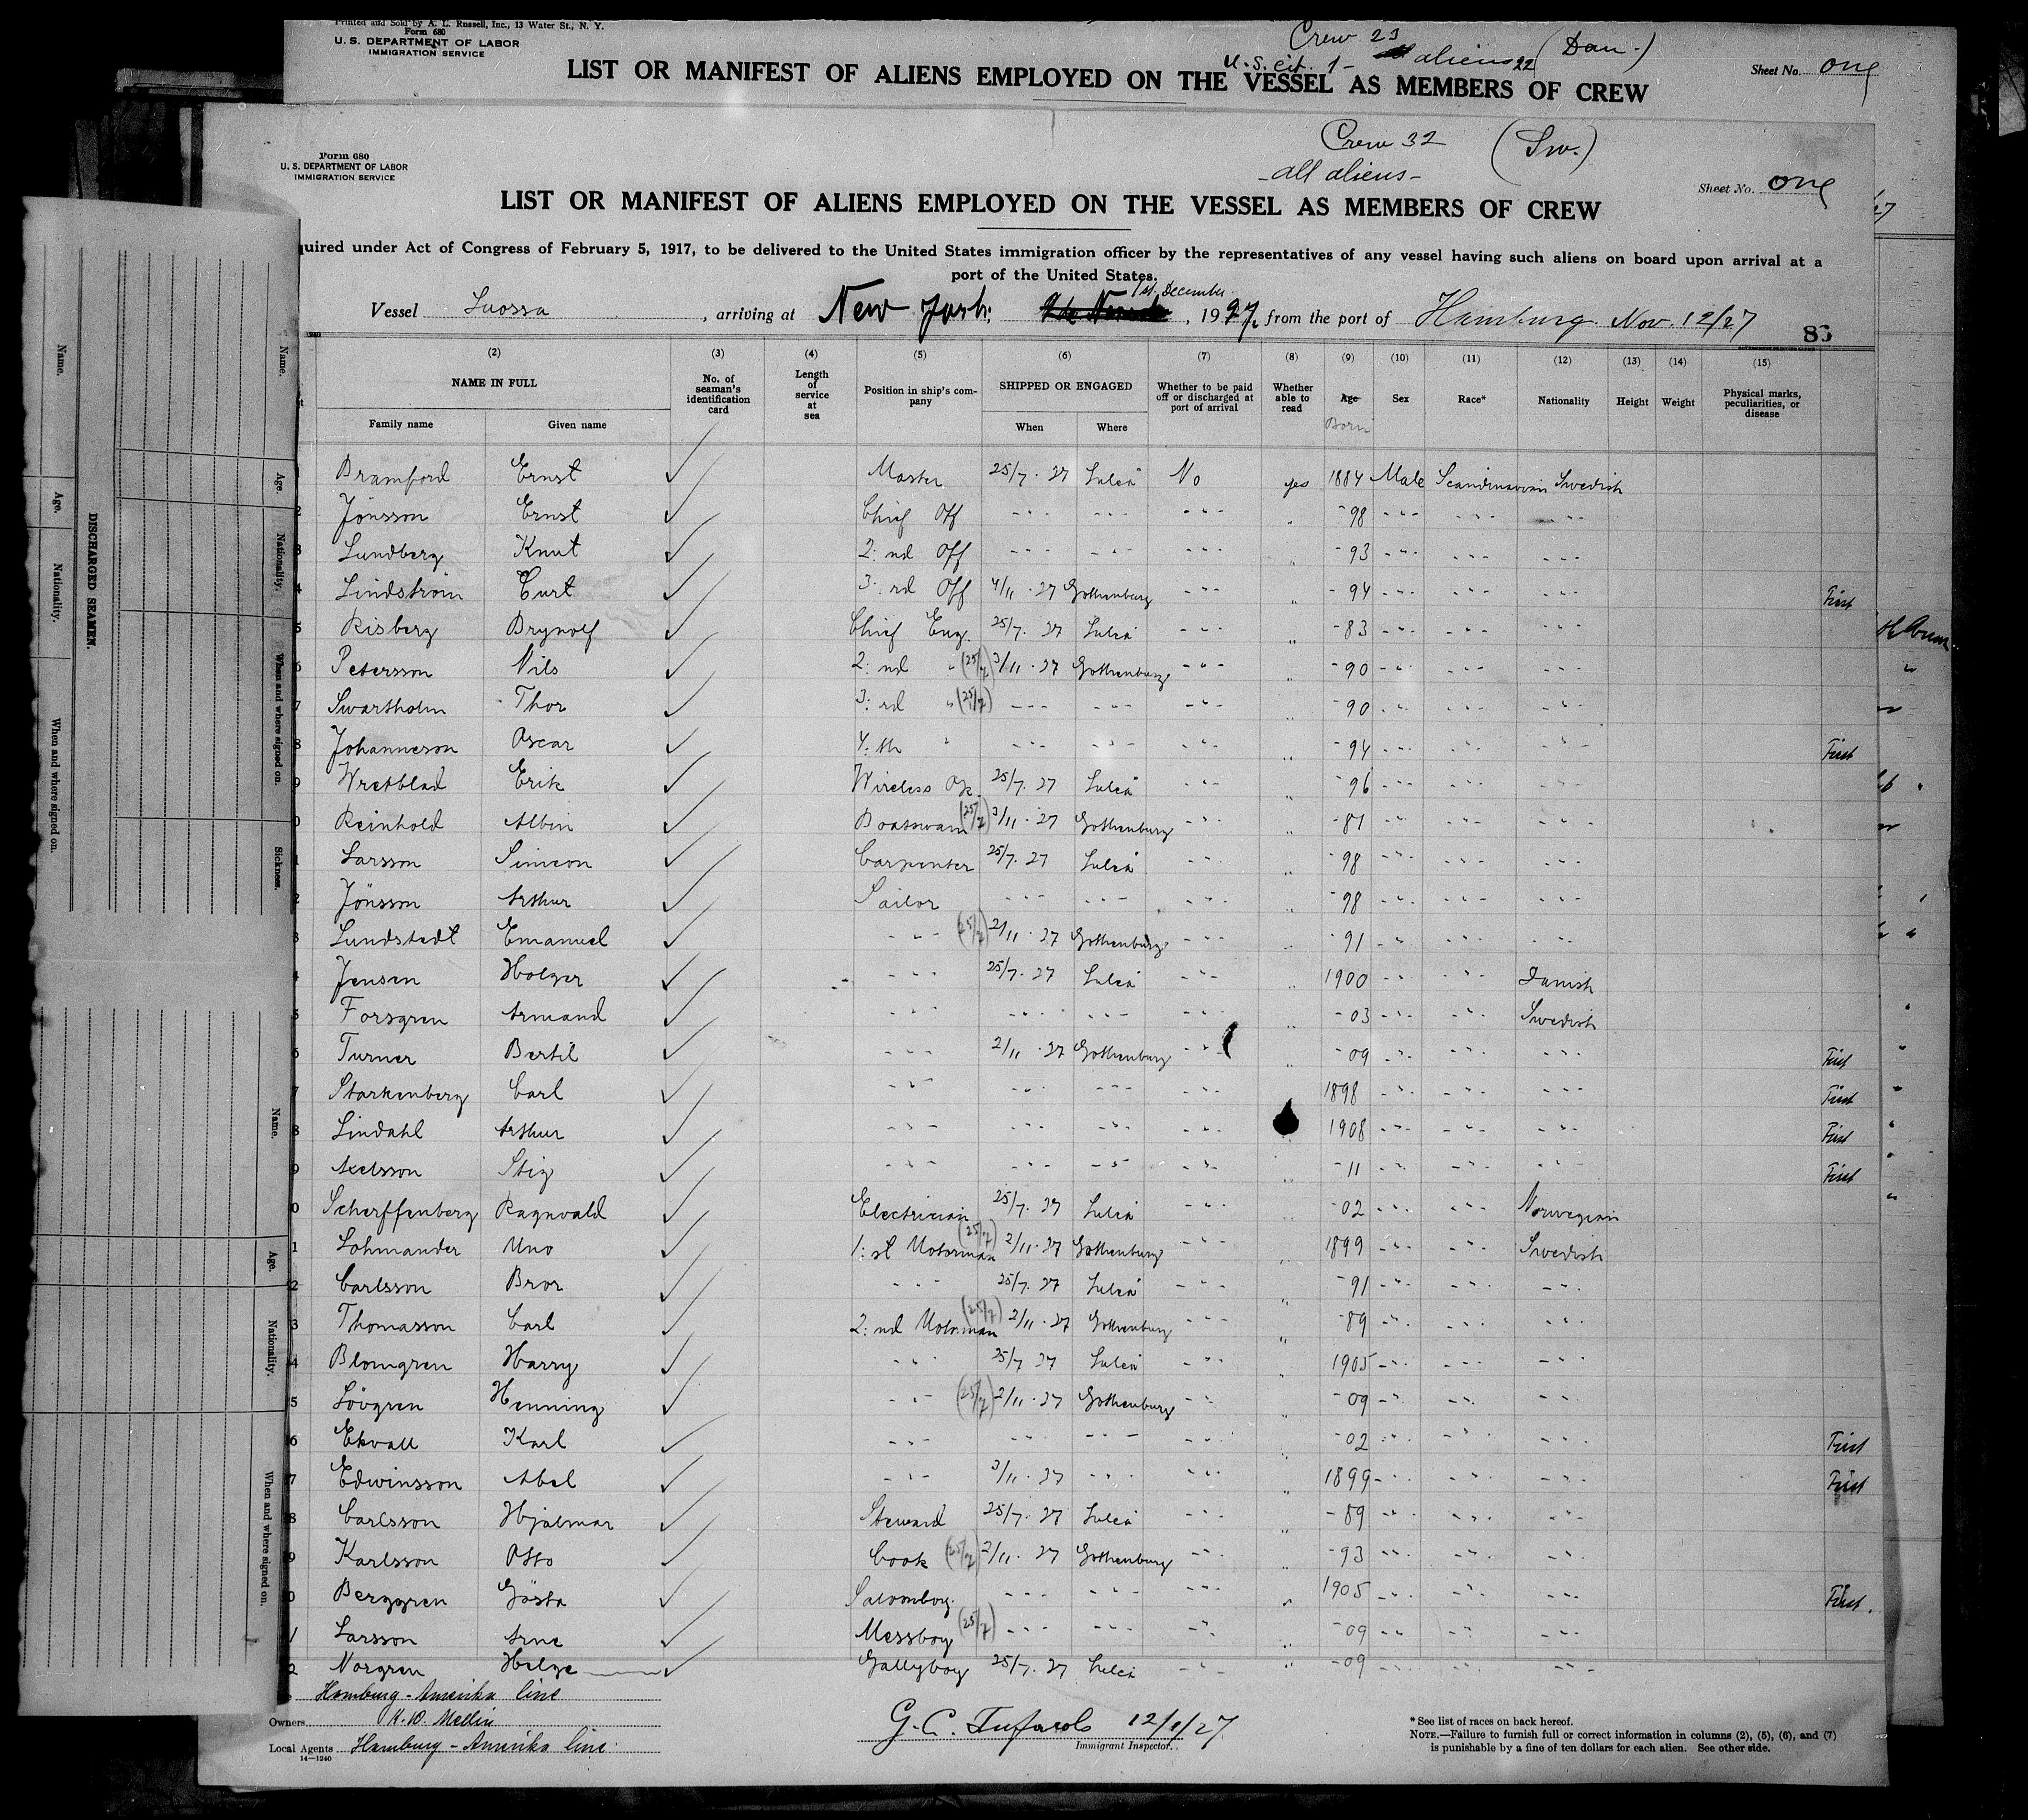 Printed and Sold by A. L. Russell, Inc., 13 Water St., N. Y.
Form 680
U. S. DEPARTMENT OF LABOR
IMMIGRATION SERVICE
Crew 23 (Dan.)
U.S. cit. 1 - aliens 22
LIST OR MANIFEST OF ALIENS EMPLOYED ON THE VESSEL AS MEMBERS OF CREW
Sheet No. one
Crew 32 (Sw.)
- all aliens -
Form 680
U. S. DEPARTMENT OF LABOR
IMMIGRATION SERVICE
Sheet No. one
LIST OR MANIFEST OF ALIENS EMPLOYED ON THE VESSEL AS MEMBERS OF CREW
quired under Act of Congress of February 5, 1917, to be delivered to the United States immigration officer by the representatives of any vessel having such aliens on board upon arrival at a
port of the United States.
Vessel Luossa, arriving at New York, 1st December, 1927, from the port of Hamburg Nov. 12/27
(2) (3) (4) (5) (6) (7) (8) (9) (10) (11) (12) (13) (14) (15)
NAME IN FULL
Family name Given name
No. of seaman's identification card
Length of service at sea
Position in ship's company
SHIPPED OR ENGAGED
When Where
Whether to be paid off or discharged at port of arrival
Whether able to read
Age
Born
Sex
Race*
Nationality
Height
Weight
Physical marks, peculiarities, or disease
Bramford Ernst Master 25/7. 27 Luleå No yes 1884 Male Scandinavian Swedish
2 Jönsson Ernst Chief Off - " - - " - - " - " -98 - " - - " - - " -
3 Lundberg Knut 2:nd Off - " - - " - - " - -93 - " - - " - - " -
4 Lindström Curt 3:rd Off 4/11. 27 Gothenburg - " - " -94 - " - - " - - " - First
5 Risberg Brynolf Chief Eng. 25/7. 27 Luleå - " - " -83 - " - - " - - " -
6 Petersson Nils 2:nd " (25/7) 3/11. 27 Gothenburg - " - -90 - " - - " - - " -
7 Swartholm Thor 3:rd " (25/7) - " - - " - - " - " -90 - " - - " - - " -
8 Johanneson Oscar 4:th " - " - - " - - " - " -94 - " - - " - - " - First
9 Wretblad Erik Wireless Op. 25/7. 27 Luleå - " - " -96 - " - - " - - " -
0 Reinhold Albin Boatswain (25/7) 3/11. 27 Gothenburg - " - " -81 - " - - " - - " -
1 Larsson Simeon Carpenter 25/7. 27 Luleå - " - " -98 - " - - " - - " -
2 Jönsson Arthur Sailor - " - - " - - " - " -98 - " - - " - - " -
3 Lundstedt Emanuel - " - (25/7) 2/11. 27 Gothenburg - " - " -91 - " - - " - - " -
4 Jensen Holger - " - 25/7. 27 Luleå - " - " 1900 - " - - " - Danish
5 Forsgren Armand - " - - " - - " - - " - " -03 - " - - " - Swedish
6 Turner Bertil - " - 2/11. 27 Gothenburg - " - " -09 - " - - " - - " - First
7 Starkenberg Carl - " - - " - - " - - " - 1898 - " - - " - - " - First
8 Lindahl Arthur - " - - " - - " - - " - 1908 - " - - " - - " - First
9 Axelsson Stig - " - - " - - " - - " - -11 - " - - " - - " - First
0 Scherffenberg Ragnvald Electrician 25/7. 27 Luleå - " - -02 - " - - " - Norwegian
1 Lohmander Uno 1:st Motorman (25/7) 2/11. 27 Gothenburg - " - " 1899 - " - - " - Swedish
2 Carlsson Bror - " - 25/7. 27 Luleå - " - " -91 - " - - " - - " -
3 Thomasson Carl 2:nd Motorman (25/7) 2/11. 27 Gothenburg - " - " -89 - " - - " - - " -
4 Blomgren Harry - " - 25/7 27 Luleå - " - " 1905 - " - - " - - " -
5 Lövgren Henning - " - (25/7) 2/11. 27 Gothenburg - " - " -09 - " - - " - - " -
6 Ekvall Karl - " - - " - - " - - " - " -02 - " - - " - - " - First
7 Edwinsson Abel - " - 3/11. 27 - " - - " - " 1899 - " - - " - - " - First
8 Carlsson Hjalmar Steward 25/7. 27 Luleå - " - " -89 - " - - " - - " -
9 Karlsson Otto Cook (25/7) 2/11. 27 Gothenburg - " - " -93 - " - - " - - " -
0 Berggren Gösta Saloonboy. - " - - " - - " - " 1905 - " - - " - - " - First.
1 Larsson Arne Messboy (25/7) - " - - " - - " - " -09 - " - - " - - " -
2 Norgren Helge Gallyboy 25/7. 27 Luleå - " - " -09 - " - - " - - " -
Hamburg - Amerika line
Owners K. D. Mellin
Local Agents Hamburg - Amerika line
14—1240
G. C. 12/1/27
Immigrant Inspector.
* See list of races on back hereof.
NOTE.—Failure to furnish full or correct information in columns (2), (5), (6), and (7)
is punishable by a fine of ten dollars for each alien. See other side.
DISCHARGED SEAMEN.
Name. Age. Nationality. When and where signed on.
Name. Age. Nationality. When and where signed on. Sickness.
Name. Age. Nationality. When and where signed on.